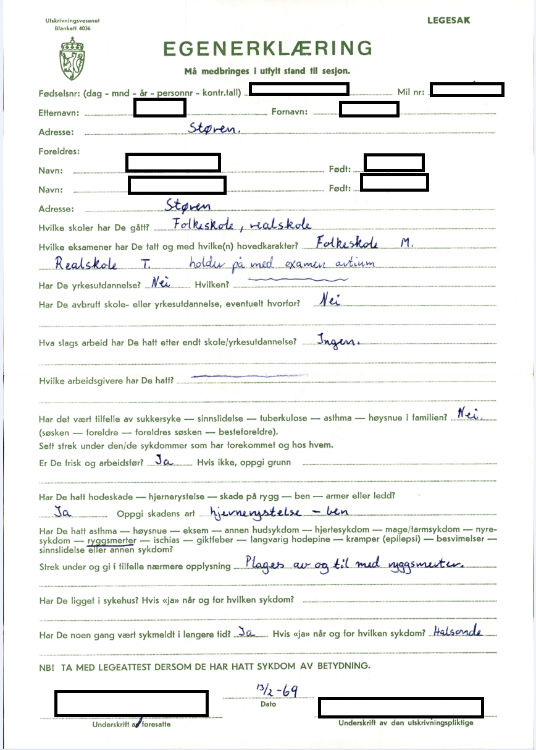 Utskrivningsvesenet
Blankett 4036
LEGESAK
EGENERKLÆRING
Må medbringes i utfylt stand til sesjon.
Fødselsnr: (dag - mnd - år - personnr - kontr.tall) Mil nr:
Etternavn: Fornavn:
Adresse: Støren.
Foreldres:
Navn: Født:
Navn: Født:
Adresse: Støren
Hvilke skoler har De gått? Folkeskole, realskole
Hvilke eksamener har De tatt og med hvilke(n) hovedkarakter? Folkeskole M.
Realskole T. holder på med examen artium
Har De yrkesutdannelse? Nei Hvilken?
Har De avbrutt skole- eller yrkesutdannelse, eventuelt hvorfor? Nei
Hva slags arbeid har De hatt etter endt skole/yrkesutdannelse? Ingen.
Hvilke arbeidsgivere har De hatt?
Har det vært tilfelle av sukkersyke — sinnslidelse — tuberkulose — asthma — høysnue i familien? Nei.
(søsken — foreldre — foreldres søsken — besteforeldre).
Sett strek under den/de sykdommer som har forekommet og hos hvem.
Er De frisk og arbeidsfør? Ja Hvis ikke, oppgi grunn
Har De hatt hodeskade — hjernerystelse — skade på rygg — ben — armer eller ledd?
Ja Oppgi skadens art hjernerystelse - ben
Har De hatt asthma — høysnue — eksem — annen hudsykdom — hjertesykdom — mage/tarmsykdom — nyre-
sykdom — ryggsmerter — ischias — giktfeber — langvarig hodepine — kramper (epilepsi) — besvimelser —
sinnslidelse eller annen sykdom?
Strek under og gi i tilfelle nærmere opplysning Plages av og til med ryggsmerter.
Har De ligget i sykehus? Hvis «ja» når og for hvilken sykdom?
Har De noen gang vært sykmeldt i lengere tid? Ja Hvis «ja» når og for hvilken sykdom? Halsonde
NB! TA MED LEGEATTEST DERSOM DE HAR HATT SYKDOM AV BETYDNING.
13/2-69
Dato
Underskrift av foresatte Underskrift av den utskrivningspliktige